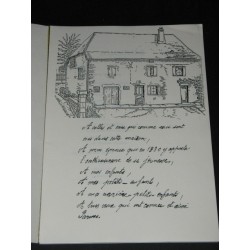 A celles et ceux qui comme moi sont
nés dans cette maison,
A mon épouse qui en 1950 y apporta
l'enthousiasme de sa jeunesse,
A mes enfants,
A mes petits-enfants,
A mes arrière-petits-enfants,
A tous ceux qui ont connu et aimé